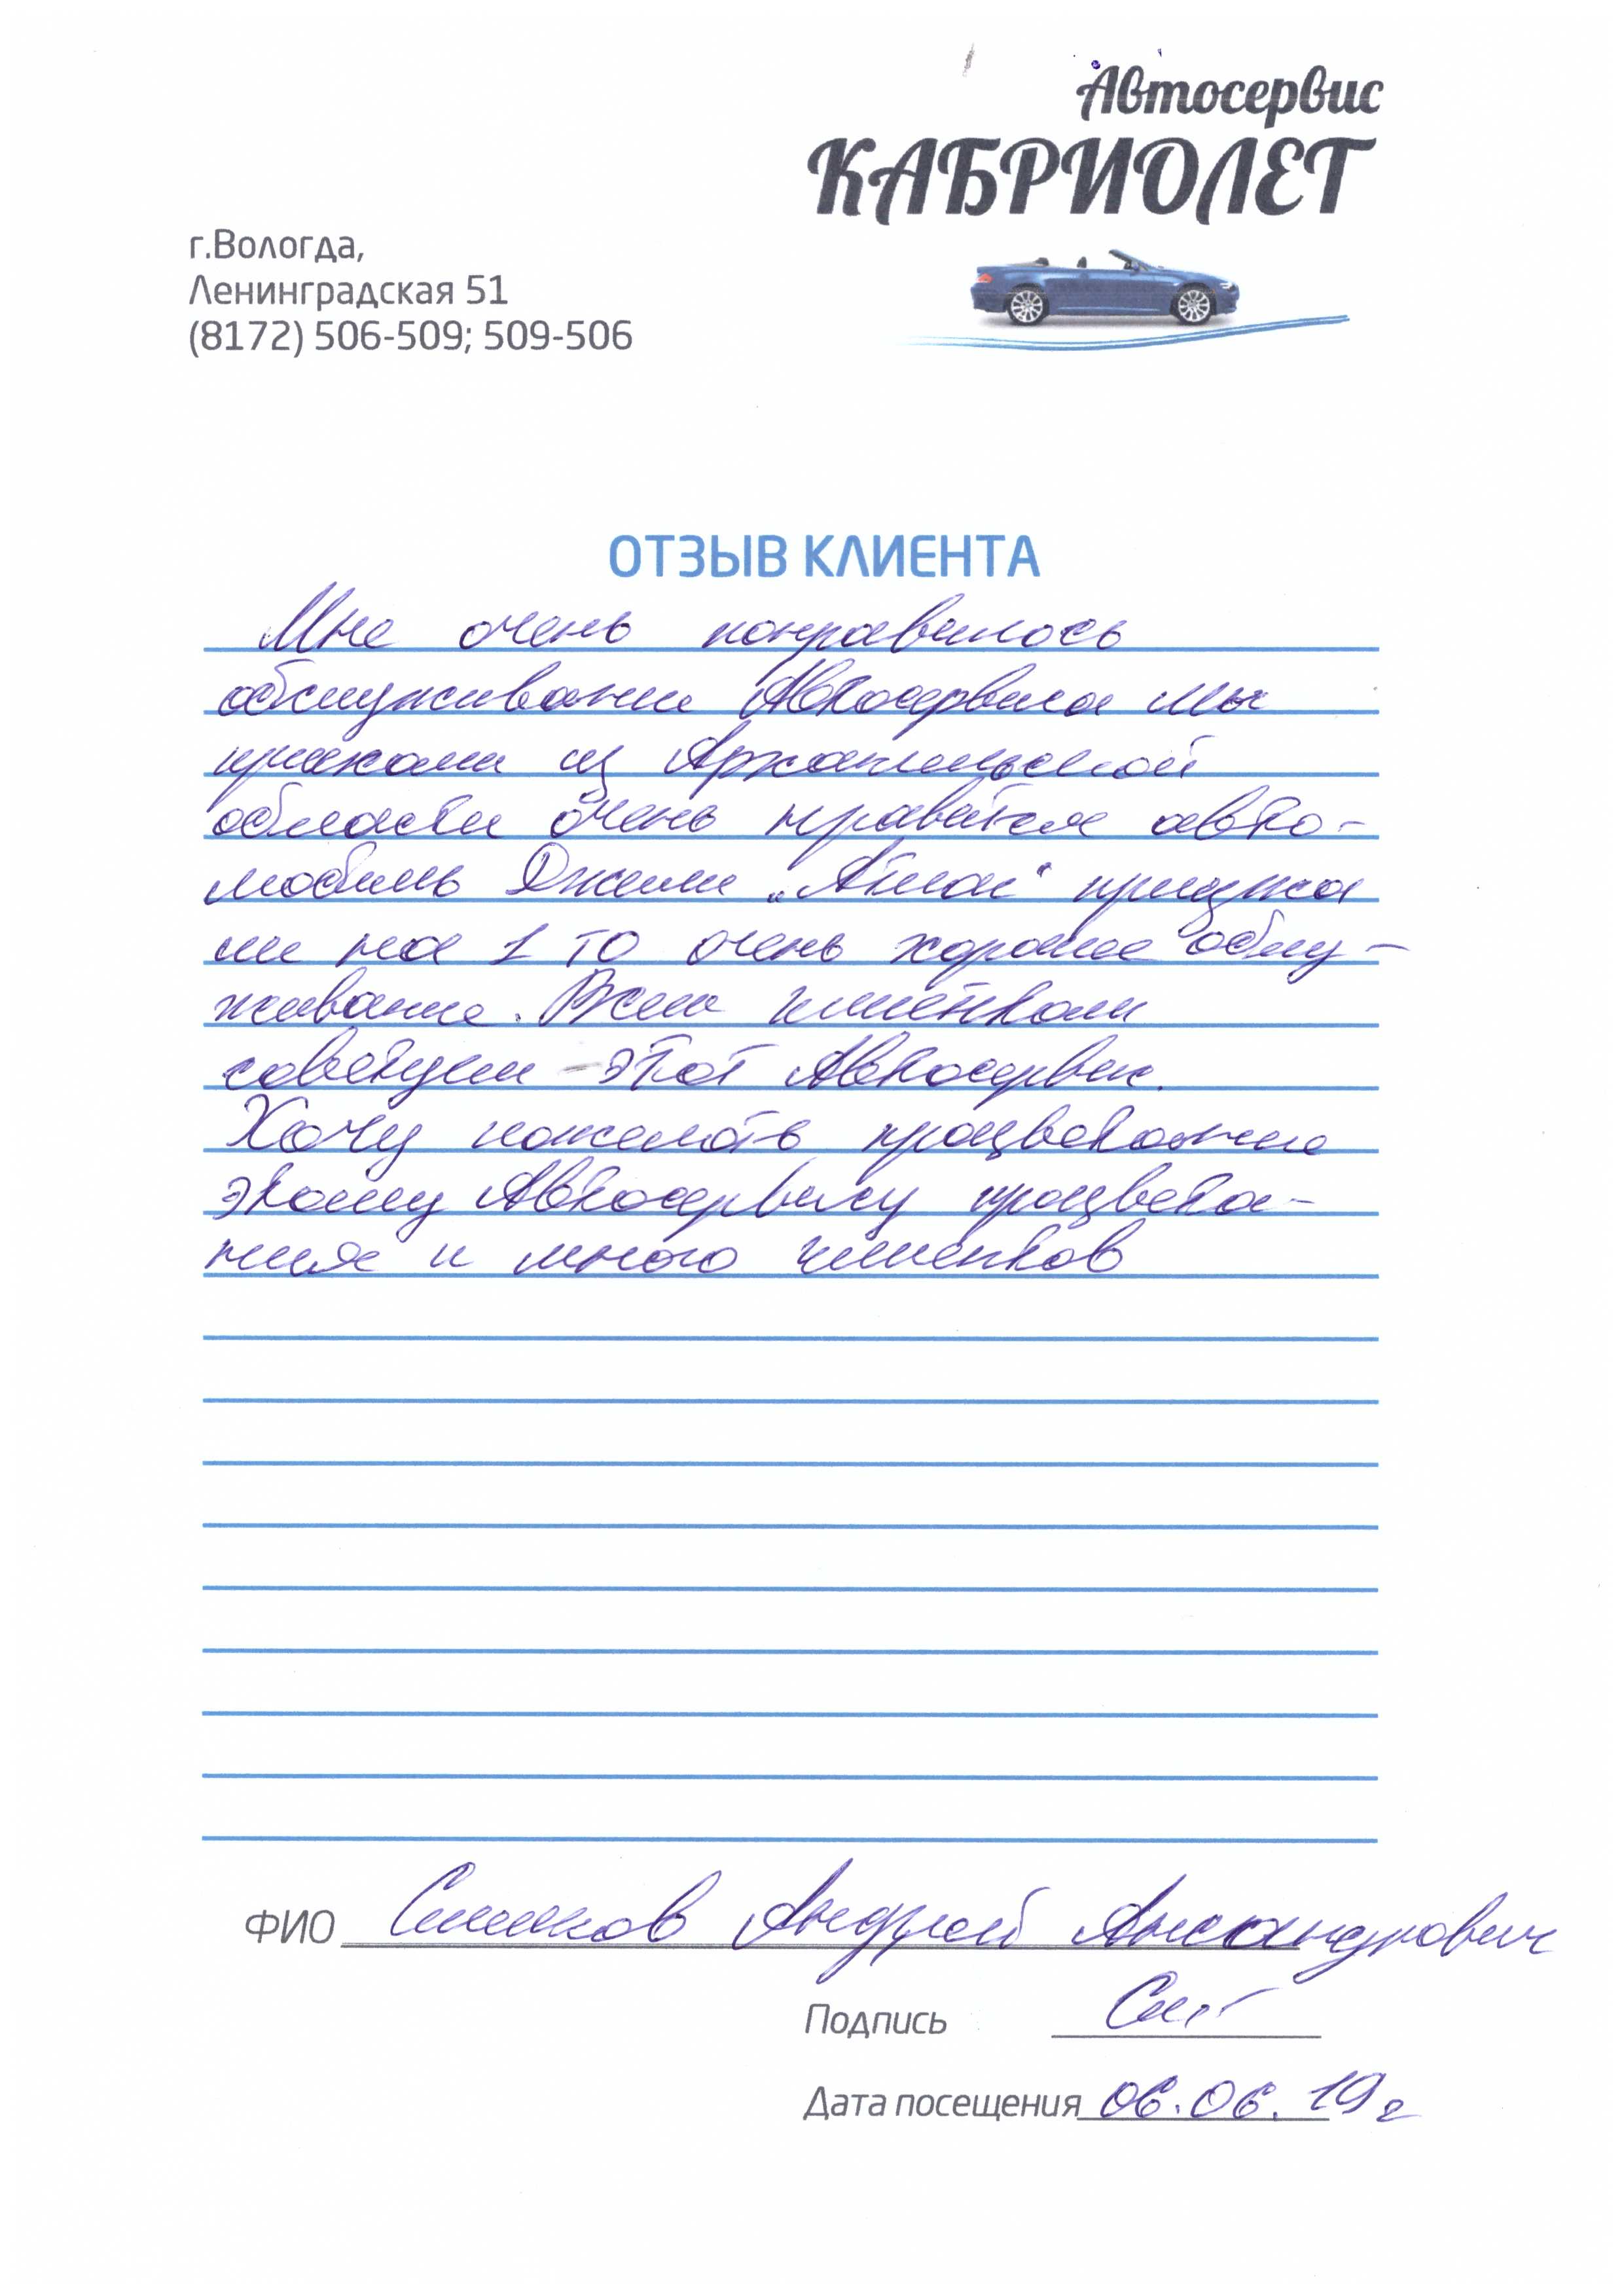 Автосервис
КАБРИОЛЕТ
г.Вологда,
Ленинградская 51
(8172) 506-509; 509-506
ОТЗЫВ КЛИЕНТА
Мне очень понравилось
обслуживание Автосервиса мы
приехали из Архангельской
области очень нравится авто-
мобиль Джили „Атлас“
ли на 1 ТО очень хорошее обслу-
живание. Всем клиентам
советуем этот Автосервис.
Хочу пожелать процветание
этому Автосервису процвета-
ния и много клиентов
ФИО Андрей
Подпись
Дата посещения 06.06.19г